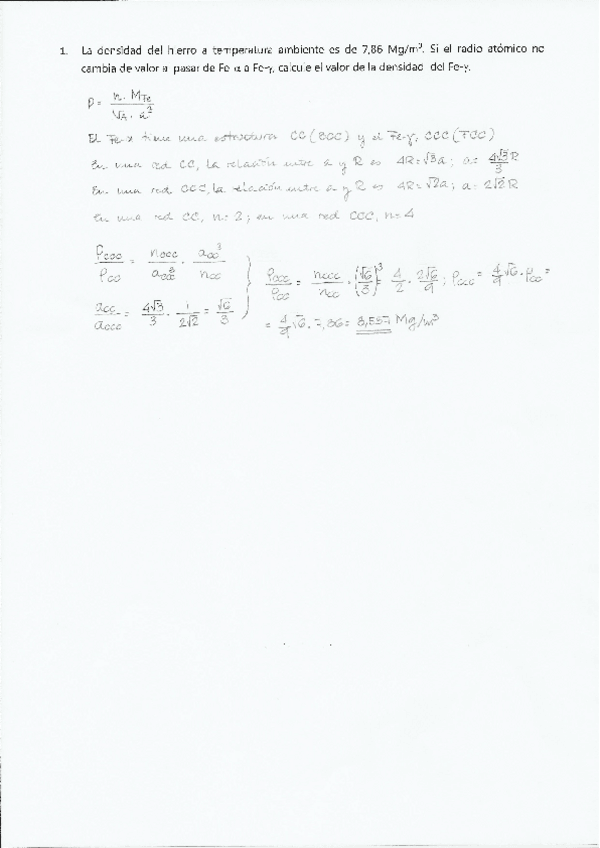 1. La densidad del hierro a temperatura ambiente es de 7,86 Mg/m³. Si el radio atómico no
cambia de valor a pasar de Fe-α a Fe-γ, calcule el valor de la densidad del Fe-γ.
ρ = n · M_Fe / N_A · a³
El Fe-α tiene una estructura CC (BCC) y el Fe-γ, CCC (FCC)
En una red CC, la relación entre a y R es 4R = √3a ; a = 4√3/3 R
En una red CCC, la relación entre a y R es 4R = √2a ; a = 2√2 R
En una red CC, n = 2 ; en una red CCC, n = 4
ρ_CCC / ρ_CC = n_CCC / a_CCC³ · a_CC³ / n_CC
a_CC / a_CCC = 4√3/3 · 1/2√2 = √6/3
ρ_CCC / ρ_CC = n_CCC / n_CC · (√6/3)³ = 4/2 · 2√6/9 ; ρ_CCC = 4/9 √6 · ρ_CC =
= 4/9 √6 · 7,86 = 8,557 Mg/m³